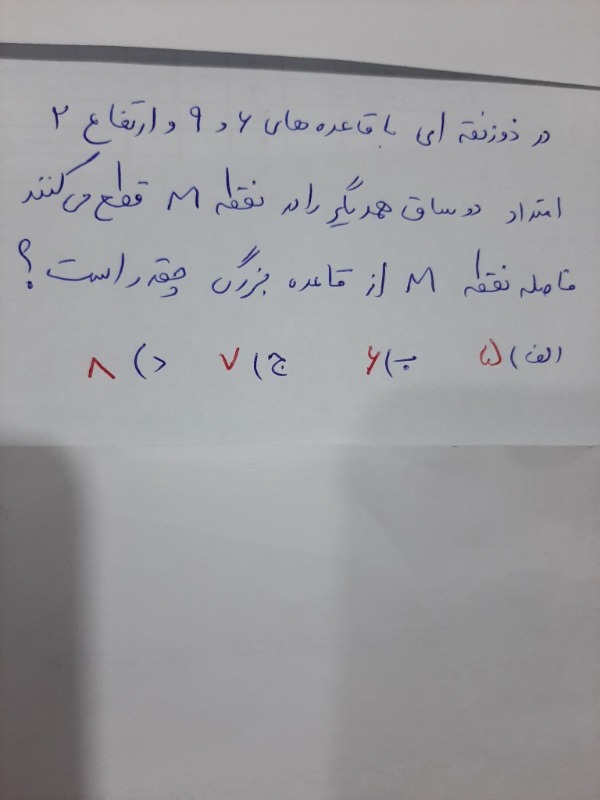 در ذوزنقه ای با قاعده های ۶ و ۹ و ارتفاع ۲
امتداد دو ساق همدیگر را در نقطه M قطع می کنند
فاصله نقطه M از قاعده بزرگ چقدر است؟
الف) ۵ ب) ۶ ج) ۷ د) ۸